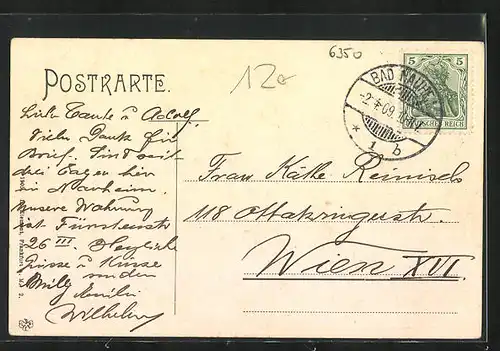 6350
12
POSTKARTE.
BAD NAUH
-2.4.09.
* 1 b
5 5
DEUTSCHES REICH
Liebe Tante u Adolf.
Vielen Dank für
Brief. Sind seit
drei Tagen hier
in Nauheim.
Unsere Wohnung
ist Fürstenstr
26 III. Herzliche
Grüsse u Küsse
Willy
Wilhelm
Frau Käthe Reinisch
118 Ottakringerstr.
Wien XVI.
Frankfurt